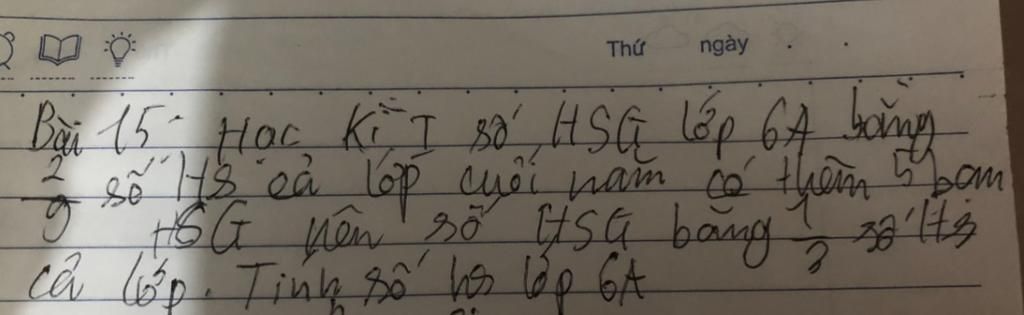 Thứ ngày . .
Bài 15. Học Kì I số HSG lớp 6A bằng
2/9 số HS cả lớp cuối năm có thêm 5 bạn
HSG nên số HSG bằng 1/3 số Hs
cả lớp. Tính số hs lớp 6A